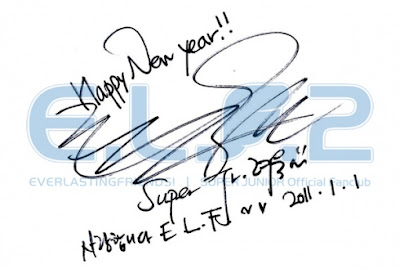 Happy New year!!
EVERLASTINGFRIENDS! | SUPER JUNIOR Official Fanclub
Super Jr.
사랑합니다 E.L.F 2011.1.1